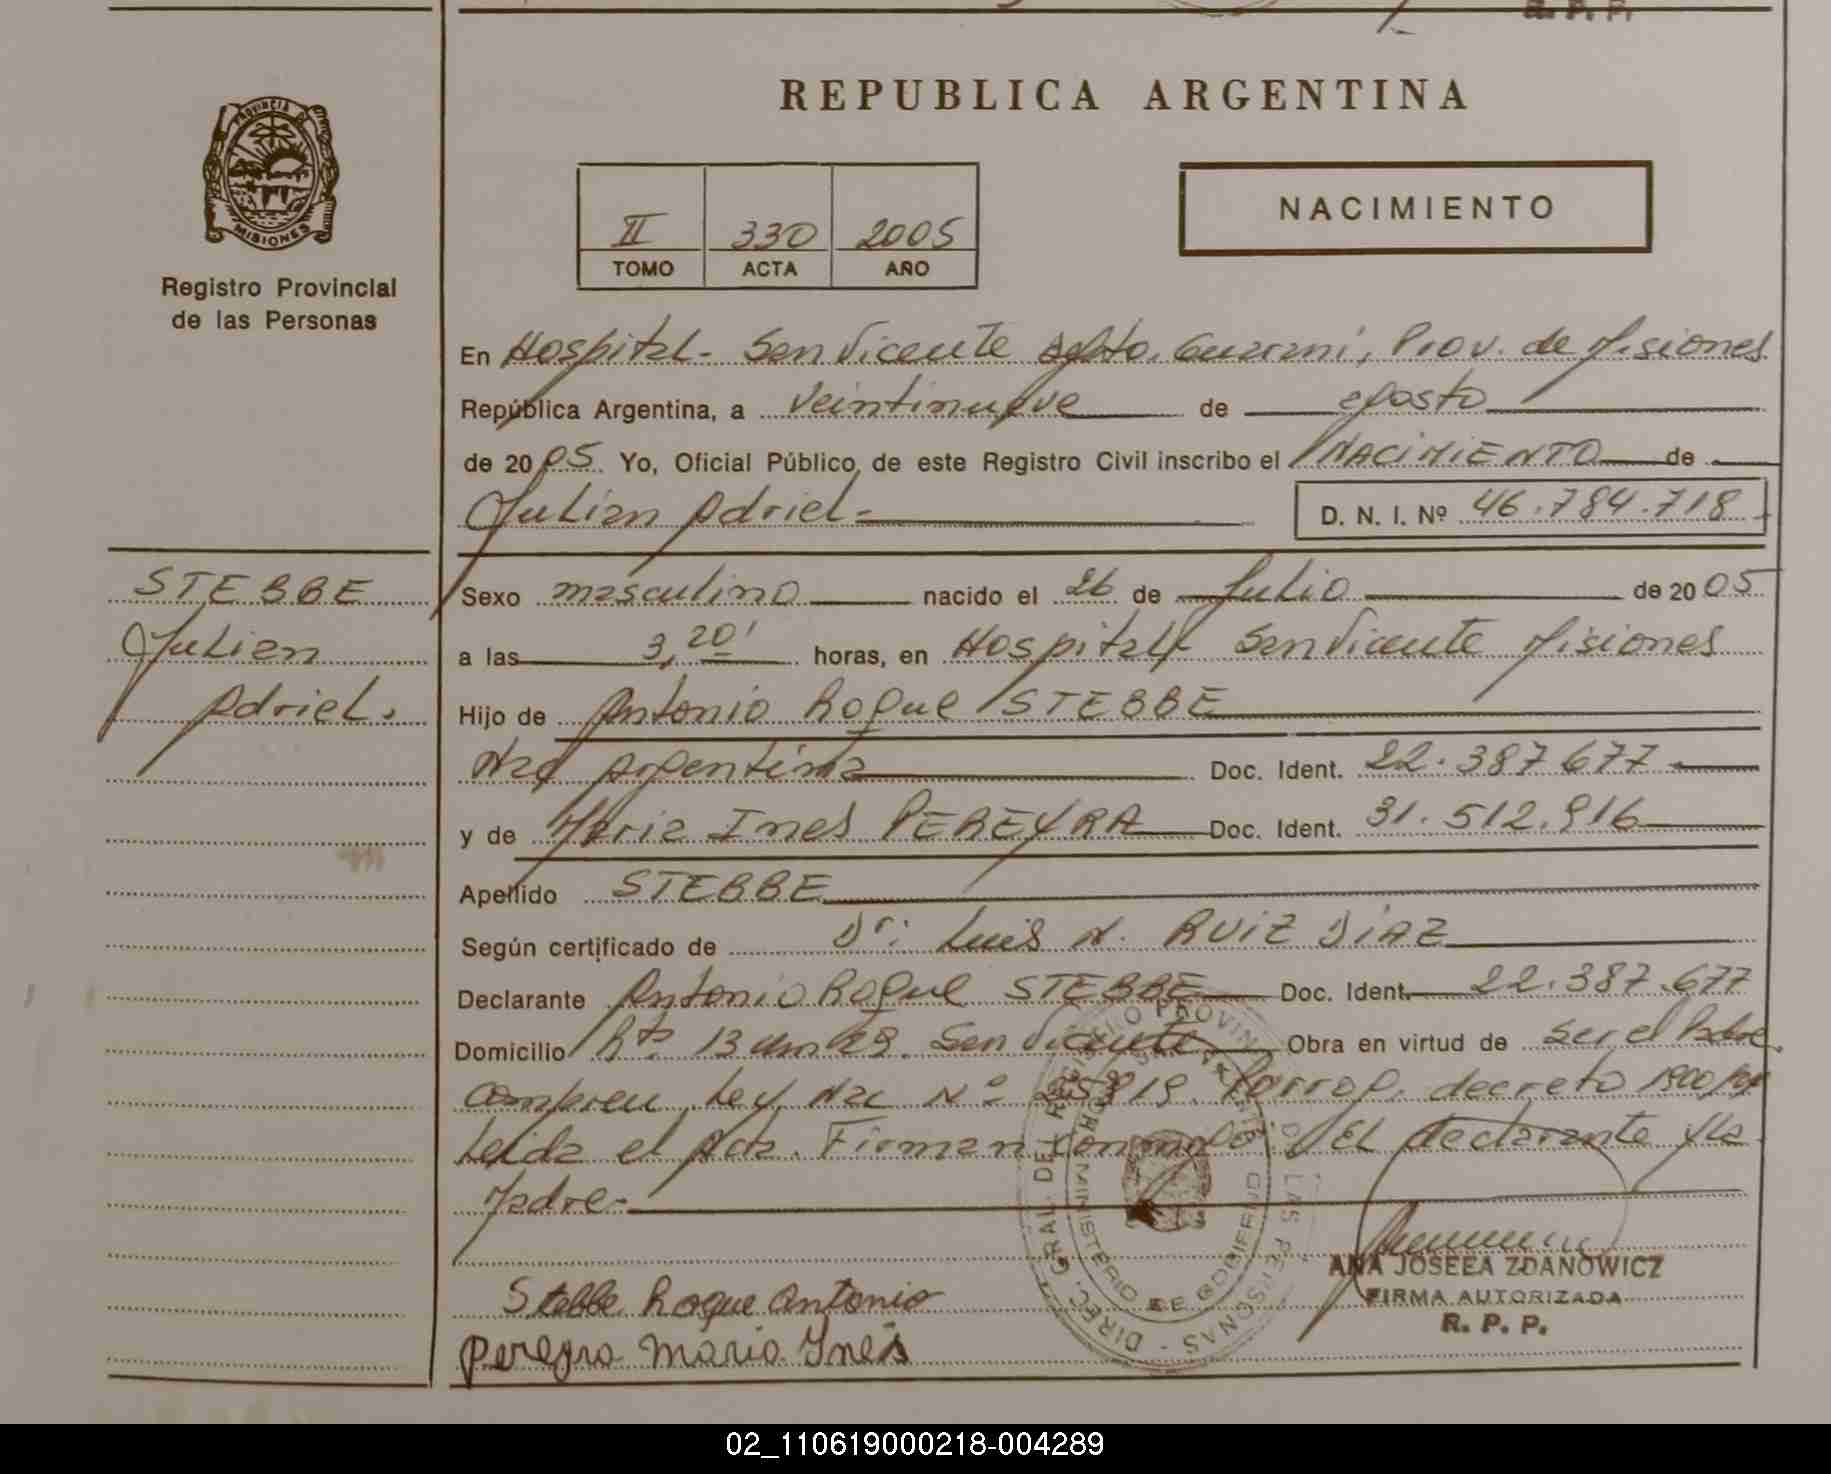 R. P. P.
REPUBLICA ARGENTINA
PROVINCIA DE MISIONES
II 330 2005
TOMO ACTA AÑO
NACIMIENTO
Registro Provincial
de las Personas
En Hospital - San Vicente Dpto. Guarani, Prov. de Misiones
República Argentina, a veintinueve de agosto
de 2005 Yo, Oficial Público de este Registro Civil inscribo el NACIMIENTO de
Julian Adriel - D. N. I. Nº 46.784.718
STEBBE
Julian
Adriel.
Sexo masculino nacido el 26 de Julio de 2005
a las 3,20' horas, en Hospital San Vicente Misiones
Hijo de Antonio Roque STEBBE
Nac argentina Doc. Ident. 22.387.677
y de Maria Ines PEREYRA Doc. Ident. 31.512.916
Apellido STEBBE
Según certificado de Dr: Luis N. RUIZ DÍAZ
Declarante Antonio Roque STEBBE Doc. Ident. 22.387.677
Domicilio Rta. 13 km 29. San Vicente Obra en virtud de ser el Padre
Ley Nac Nº decreto
Leida el Acta. Firman conmigo: El declarante y la
Madre -
DIREC. GRAL. DE REGISTRO PROVINCIAL DE LAS PERSONAS
MINISTERIO DE GOBIERNO
Stebbe Roque Antonio
Pereyra Maria Ines
ANA JOSEFA ZDANOWICZ
FIRMA AUTORIZADA
R. P. P.
02_110619000218-004289